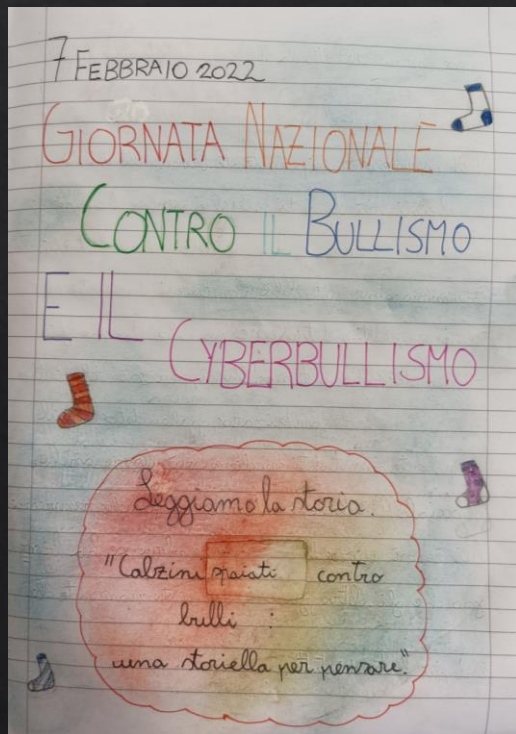 7 FEBBRAIO 2022
GIORNATA NAZIONALE
CONTRO IL BULLISMO
E IL
CYBERBULLISMO
Leggiamo la storia.
"Calzini spaiati contro
bulli :
una storiella per pensare."